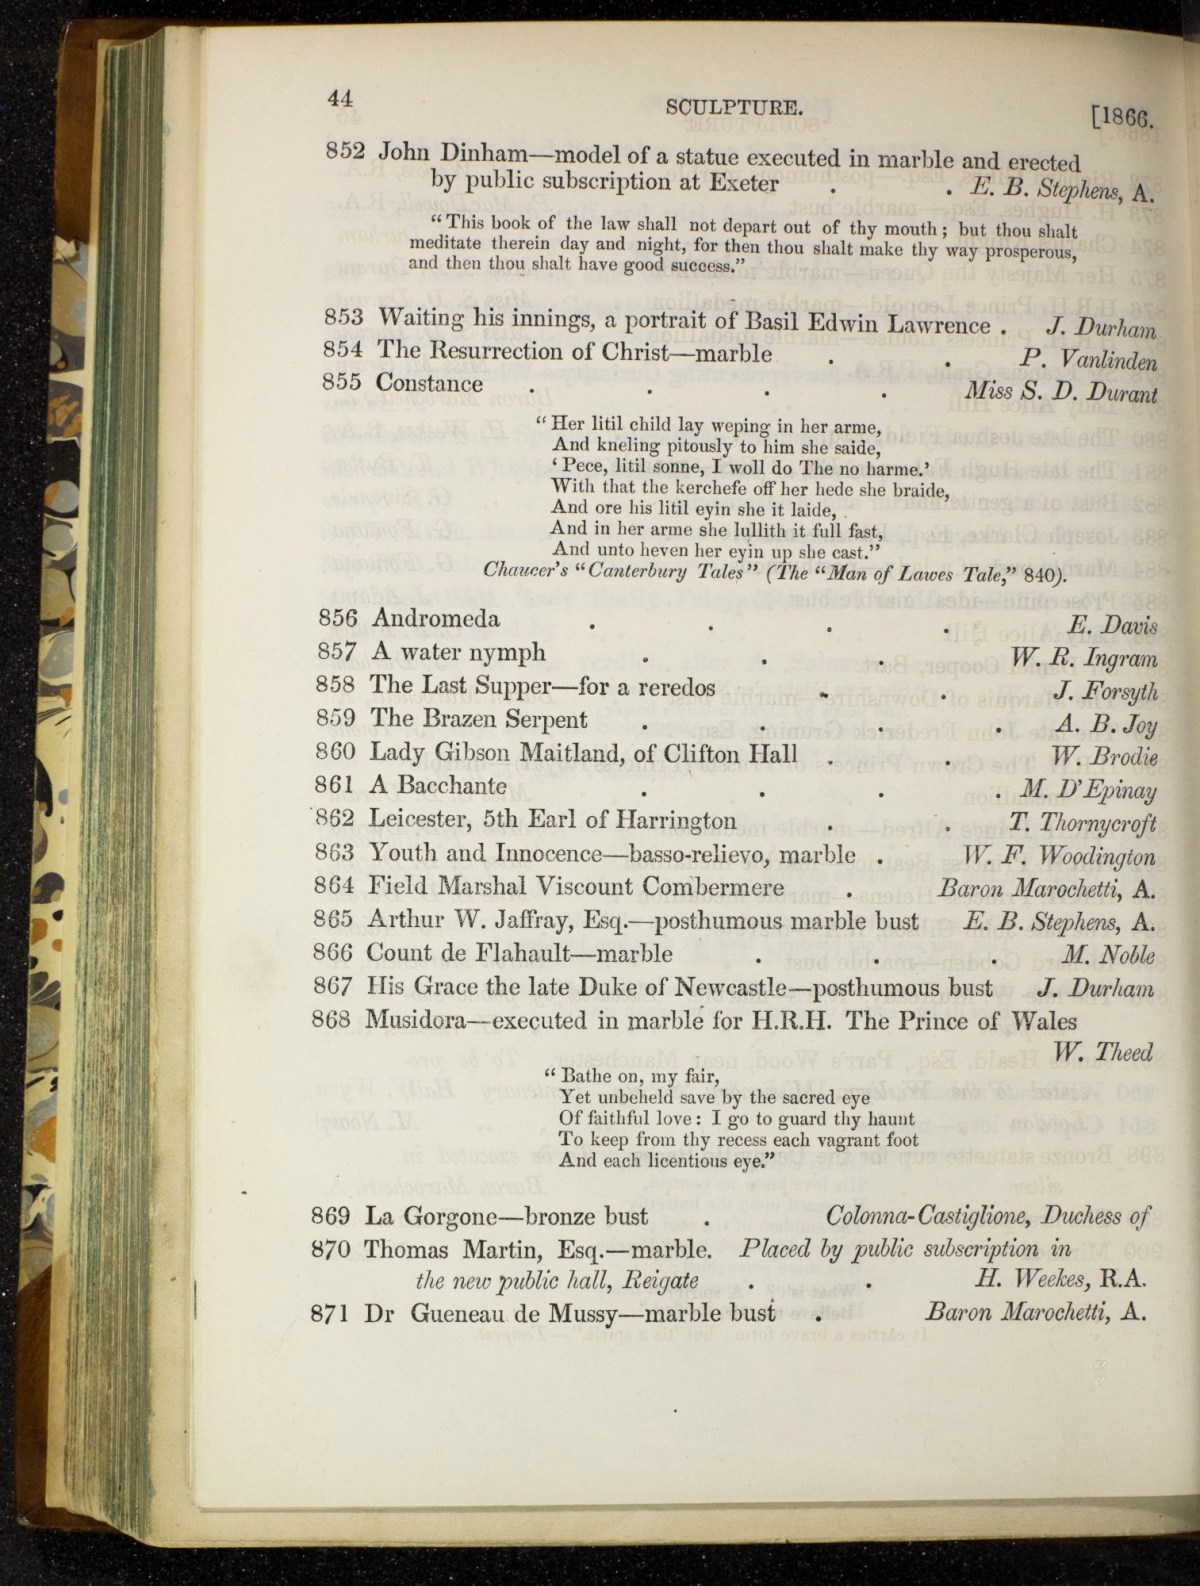 44
SCULPTURE.
[1866.
852 John Dinham—model of a statue executed in marble and erected
by public subscription at Exeter . . E. B. Stephens, A.
“This book of the law shall not depart out of thy mouth; but thou shalt
meditate therein day and night, for then thou shalt make thy way prosperous,
and then thou shalt have good success.”
853 Waiting his innings, a portrait of Basil Edwin Lawrence . J. Durham
854 The Resurrection of Christ—marble . . P. Vanlinden
855 Constance . . . . Miss S. D. Durant
“Her litil child lay weping in her arme,
And kneling pitously to him she saide,
‘Pece, litil sonne, I woll do The no harme.’
With that the kerchefe off her hede she braide,
And ore his litil eyin she it laide,
And in her arme she lullith it full fast,
And unto heven her eyin up she cast.”
Chaucer's “Canterbury Tales” (The “Man of Lawes Tale,” 840).
856 Andromeda . . . . E. Davis
857 A water nymph . . . W. R. Ingram
858 The Last Supper—for a reredos . . J. Forsyth
859 The Brazen Serpent . . . . A. B. Joy
860 Lady Gibson Maitland, of Clifton Hall . . W. Brodie
861 A Bacchante . . . . M. D'Epinay
862 Leicester, 5th Earl of Harrington . . T. Thornycroft
863 Youth and Innocence—basso-relievo, marble . W. F. Woodington
864 Field Marshal Viscount Combermere . Baron Marochetti, A.
865 Arthur W. Jaffray, Esq.—posthumous marble bust E. B. Stephens, A.
866 Count de Flahault—marble . . . M. Noble
867 His Grace the late Duke of Newcastle—posthumous bust J. Durham
868 Musidora—executed in marble for H.R.H. The Prince of Wales
W. Theed
“Bathe on, my fair,
Yet unbeheld save by the sacred eye
Of faithful love: I go to guard thy haunt
To keep from thy recess each vagrant foot
And each licentious eye.”
869 La Gorgone—bronze bust . Colonna-Castiglione, Duchess of
870 Thomas Martin, Esq.—marble. Placed by public subscription in
the new public hall, Reigate . . H. Weekes, R.A.
871 Dr Gueneau de Mussy—marble bust . Baron Marochetti, A.